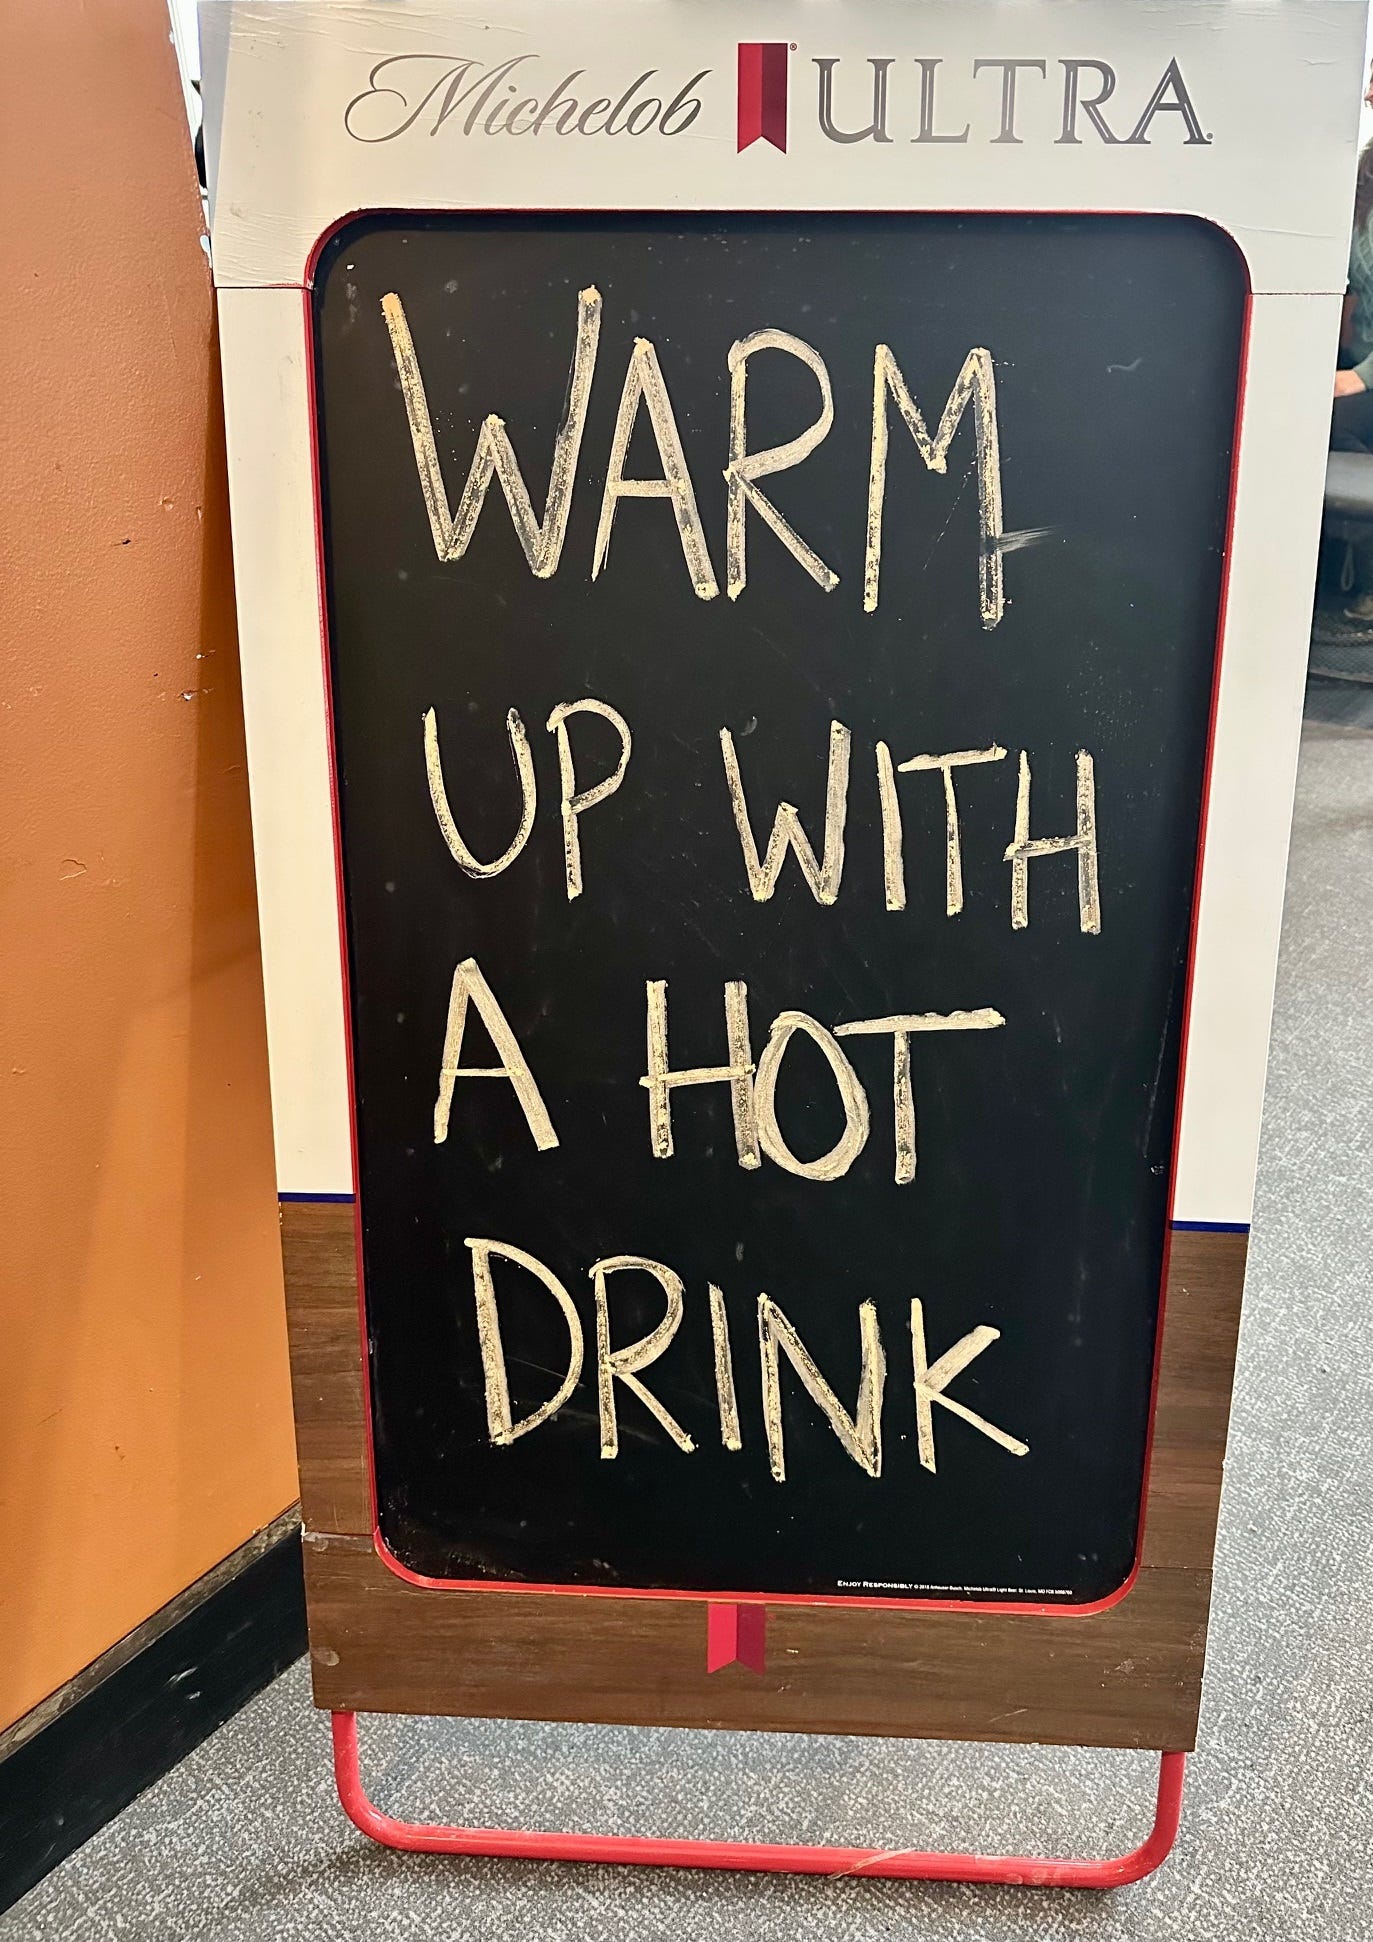 Michelob ULTRA
WARM
UP WITH
A HOT
DRINK
ENJOY RESPONSIBLY © 2018 Anheuser-Busch, Michelob Ultra® Light Beer, St. Louis, MO